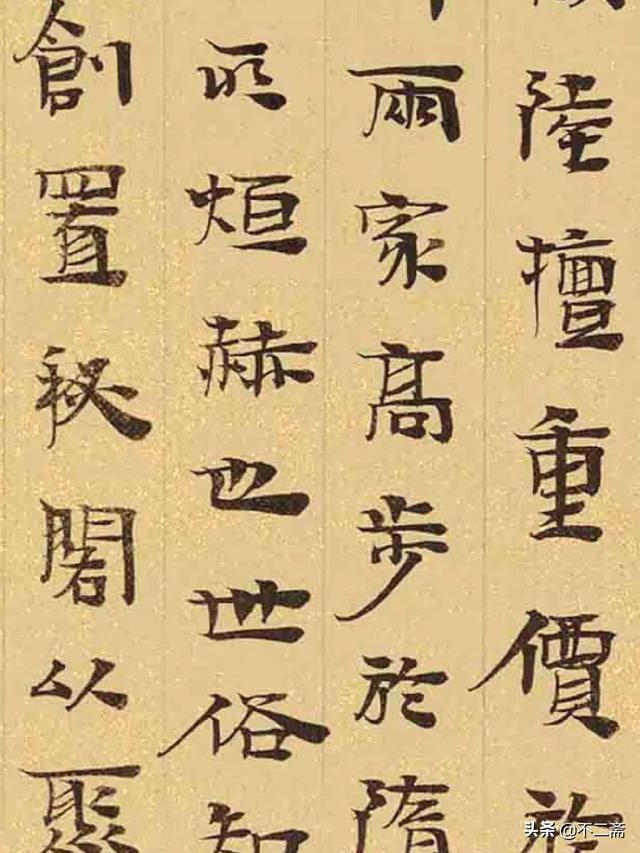 陸擅重價於
兩家高步於隋
所烜赫也世俗知
創置秘閣以聚
头条 @不二斋